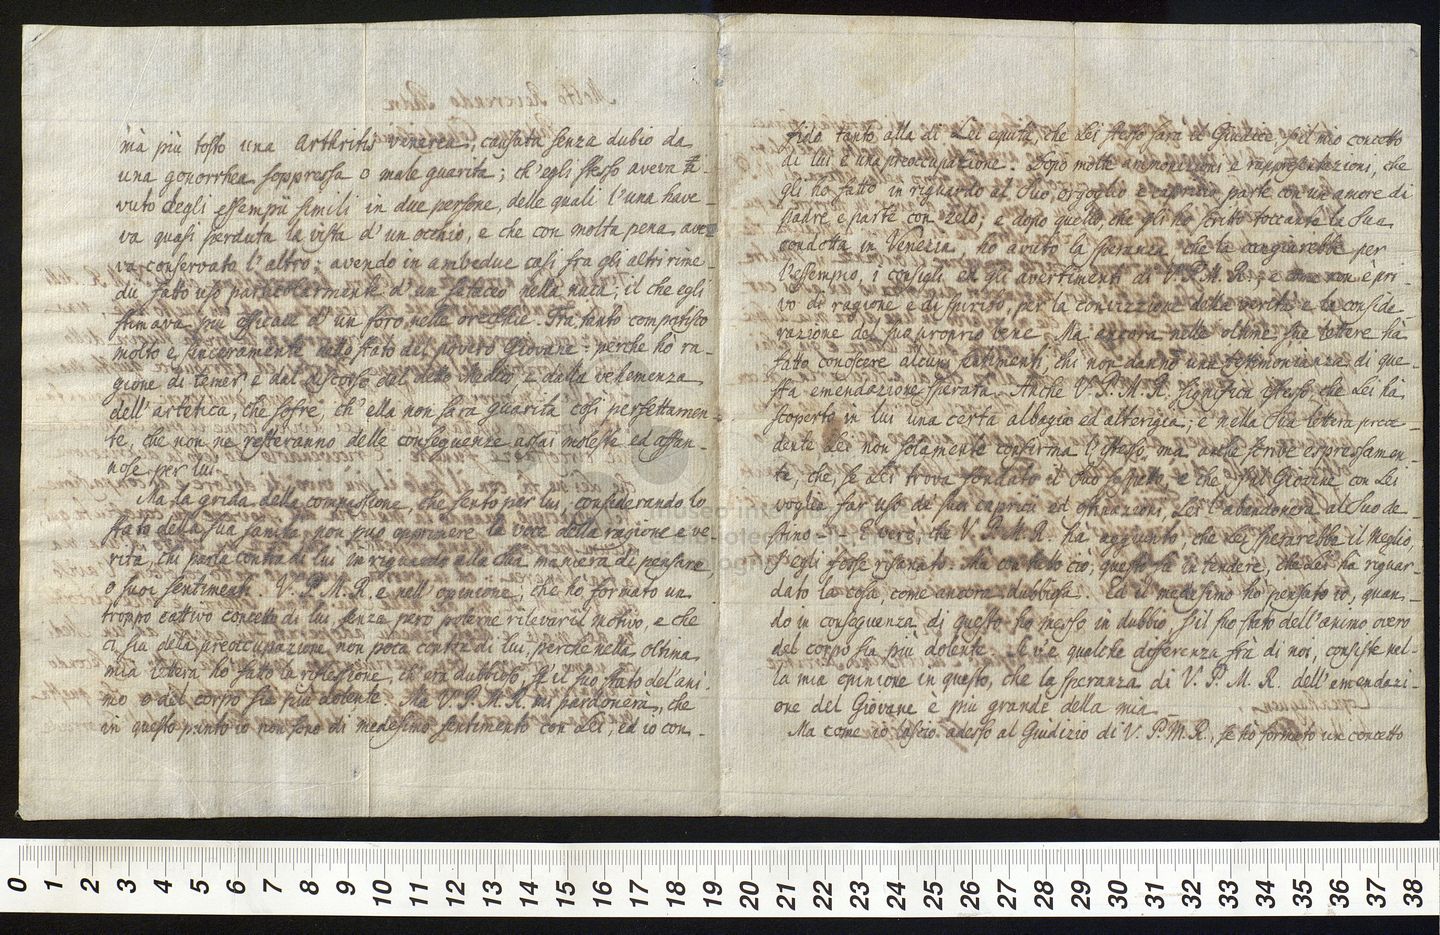 mà più tosto una Arthritis venerea, causata senza dubio da
una gonorrhea soppressa o male guarita; ch'egli stesso aveva
vuto degli essempii simili in due persone, delle quali l'una have-
va quasi perduta la vista d'un occhio, e che con molta pena ave-
va conservato l'altro: avendo in ambedue casi fra gli altri rime-
dii fatto uso particolarmente d'un setaceo nella nuca; il che egli
stimava più efficace d'un foro nelle orecchie. Fra tanto compatisco
molto e sinceramente nello stato del povero Giovane: perche hò ra-
gione di temer e dal discorso del detto Medico e dalla vehemenza
dell'artetica, che sofre, ch'ella non sarà guarita così perfettamen-
te, che non ne resteranno delle conseguenze assai moleste ed affan-
nose per lui.
Ma la grida della compassione, che sento per lui, considerando lo
stato della sua sanità, non può opprimere la voce della ragione e ve-
rità, chi parla contra di lui in riguardo alla sua maniera di pensare
o suoi sentimenti. V. P. M. R. e nell'opinione, che hò formato un
troppo cattivo concetto di lui, senza però poterne rilevar il motivo, e che
ci sia della preoccupazione non poca contra di lui, perche nella oltima
mia lettera hò fatto la riflessione, ch'era dubbioso, s'il suo stato del'ani-
mo o del corpo sia più dolente. Ma V. P. M. R. mi pardonerà, che
in questo punto io non sono di medesimo sentimento con Lei, ed io con-
fido tanto alla di Lei equità, che Lei stesso sarà il Giudice, s'il mio concetto
di lui è una preoccupazione. Dopo molte ammonizioni e rappresentazioni, che
gli hò fatto in riguardo al suo orgoglio e capriccio parte con un amore di
Padre e parte con zelo; e dopo quello, che gli hò scritto toccante la sua
condotta in Venezia, hò avuto la speranza, che la cangiarebbe per
l'essempio, i consigli ed gli avertimenti di V. P. M. R., e come non è pri-
vo di ragione e di spirito, per la convizzione della verità e la conside-
razione del suo proprio bene. Ma ancora nelle oltime sue lettere hà
fatto conoscere alcuni sentimenti, chi non danno una testimonianza di que-
sta emendazione sperata. Anche V. P. M. R. significa istesso, che Lei hà
scoperto in lui una certa albagia ed alterigia; e nella Sua lettera prece-
dente Lei non solamente confirma l'istesso, ma anche scrive espressamen-
te, che, se Lei trova fondato il Suo sospetto, e che s'il Giovine con Lei
voglia far uso de' suoi capricci ed ostinazioni, Lei l'abandonerà al suo de-
stino. È vero, che V. P. M. R. hà aggiunto, che Lei sperarebbe il meglio,
s'egli fosse risanato. Ma con tutto ciò, questo fà intendere, che Lei hà riguar-
dato la cosa, come ancora dubbiosa. Ed il medesimo hò pensato io, quan-
do in conseguenza di questo hò messo in dubbio, s'il suo stato dell'animo overo
del corpo sia più dolente. Se v'è qualche differenza frà di noi, consiste nel-
la mia opinione in questo, che la speranza di V. P. M. R. dell'emendazi-
one del Giovane è più grande della mia.
Ma come io lascio adesso al Giudizio di V. P. M. R., se hò formato un concetto
0 1 2 3 4 5 6 7 8 9 10 11 12 13 14 15 16 17 18 19 20 21 22 23 24 25 26 27 28 29 30 31 32 33 34 35 36 37 38